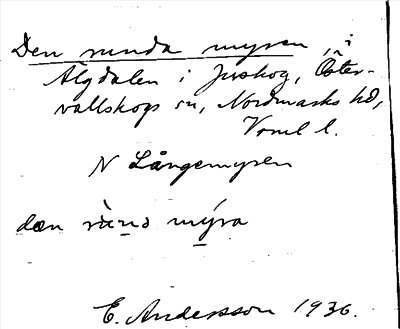 Den runda myren, i
Älgdalen i Juskog, Öster-
vallskogs sn, Nordmarks hd,
Vrml l.
N Långemyren
dæn rùnɔ mýra
E. Andersson 1936.